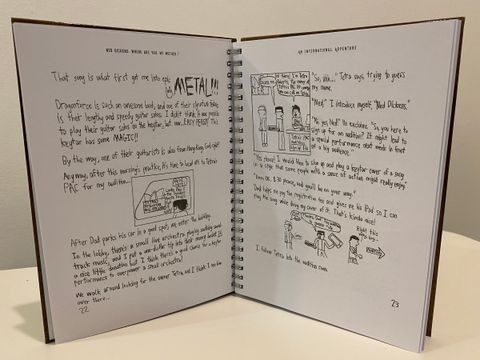 NED DICKENS: WHERE ARE YOU, MY MOTHER?
That song is what first got me into epic
METAL!!!
Dragonforce is such an awesome band, and one of their signature things
is their lengthy and speedy guitar solos. I didn't think it was possible
to play their guitar solos on the keytar, but now...EASY PEASY! This
keytar has some MAGIC!!
By the way, one of their guitarists is also from Hong Kong. Cool, right?
Anyway, after this morning's practice, it's time to head off to Tetra's
PAC for my audition...
After Dad parks his car in a good spot, we enter the building.
In the lobby, there's a small live orchestra playing
track music, and I put a one dollar tip into their money basket. It's
a nice little donation but I think there's a good chance for a keytar
performance to overpower a small orchestra!
We walk around looking for the owner Tetra, and I think I see her
over there...
22
AN INTERNATIONAL ADVENTURE
"So, uhh..." Tetra says trying to guess
my name.
"Ned." I introduce myself, "Ned Dickens."
"Hi yes, Ned!" she exclaims. "So, you here to
sign up for an audition? It might lead to
a special performance next week in front
of a big audience."
"Yes please! I would like to sign up and play a keytar cover of a song
in a style that some people with a sense of action might really enjoy."
"Even OK. $30 please, and you'll be on your way."
Dad helps me pay the registration fee and gives me his iPod so I can
play the song while doing my cover of it. That's kinda nice!
Right this
way, boy...
I follow Tetra into the audition room.
23